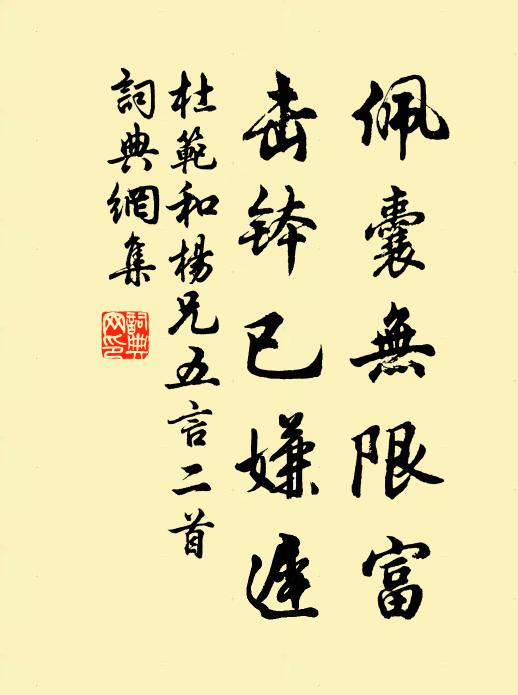 佩囊無限富
击鉢已嫌遲
杜範和楊兄五言二首
詞典網集
詞典網印